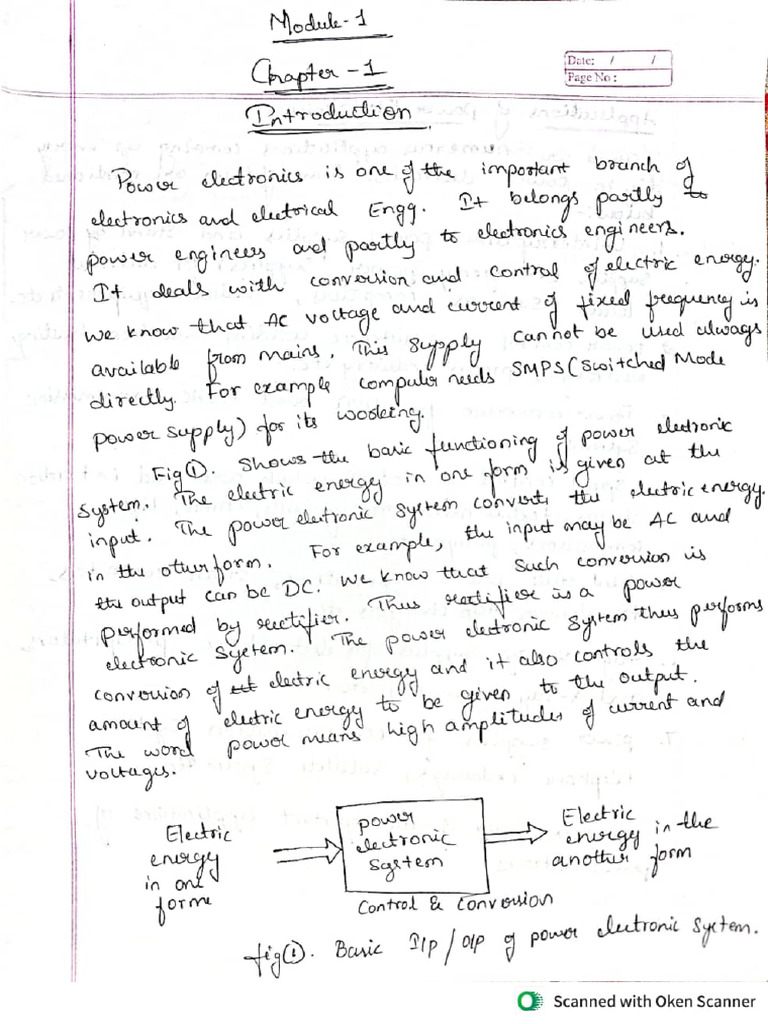 Module-1
Chapter-1
Date: / /
Page No:
Introduction
Power electronics is one of the important branch of
electronics and electrical Engg. It belongs partly to
power engineers and partly to electronics engineers.
It deals with conversion and control of electric energy.
we know that AC voltage and current of fixed frequency is
available from mains. This supply cannot be used always
directly. For example computer needs SMPS (Switched Mode
power supply) for its working.
Fig①. Shows the basic functioning of power electronic
system. The electric energy in one form is given at the
input. The power electronic system converts the electric energy.
in the other form. For example, the input may be AC and
the output can be DC. we know that such conversion is
performed by rectifier. Thus rectifier is a power
electronic system. The power electronic system thus performs
conversion of electric energy and it also controls the
amount of electric energy to be given to the output.
The word power means high amplitudes of current and
voltages.
Electric
energy
in one
forme
power
electronic
System
Electric
energy in the
another form
Control & Conversion
fig①. Basic I/p / o/p of power electronic system.
Scanned with Oken Scanner